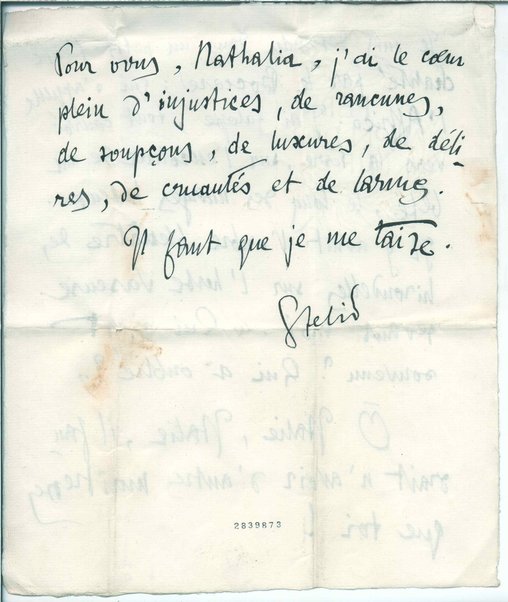 Pour vous, Nathalia, j'ai le cœur
plein d'injustices, de rancunes,
de soupçons, de luxures, de déli-
res, de cruautés et de larmes.
Il faut que je me taire.
Stelio
2839873